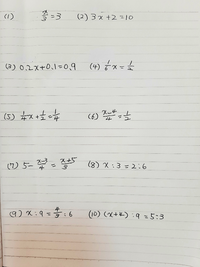 (1) x/5 = 3 (2) 3x+2=10
(3) 0.2x+0.1=0.9 (4) 1/6 x = 1/2
(5) 1/4 x + 1/2 = 1/4 (6) x-4/4 = 1/2
(7) 5 - x-3/4 = x+5/3 (8) x : 3 = 2 : 6
(9) x : 9 = 4/3 : 6 (10) (x+4) : 9 = 5 : 3